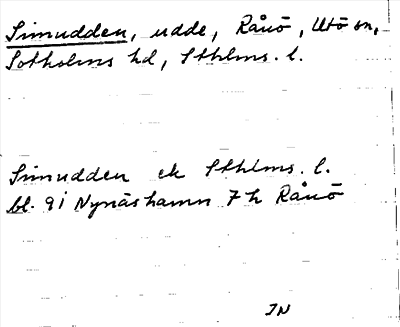 Simudden, udde, Rånö, Utö sn,
Sotholms hd, Sthlms. l.
Simudden ek Sthlms. l.
bl. 9i Nynäshamn 7h Rånö
IN